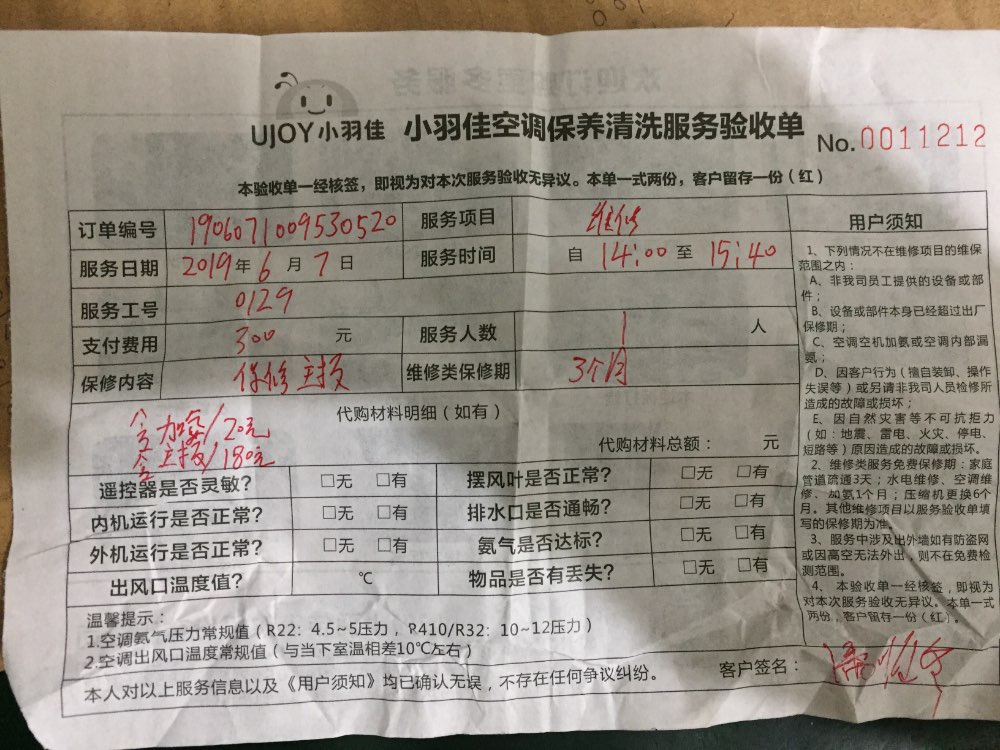 欢迎订购更多服务
UJOY小羽佳 小羽佳空调保养清洗服务验收单 No.0011212
本验收单一经核签，即视为对本次服务验收无异议。本单一式两份，客户留存一份（红）
订单编号 1906071009530520 服务项目 维修
服务日期 2019年6月7日 服务时间 自 14:00 至 15:40
服务工号 0129
支付费用 300 元 服务人数 1 人
保修内容 保修主板 维修类保修期 3个月
代购材料明细（如有）
加氨/120元
主板/180元
代购材料总额： 元
遥控器是否灵敏? □无 □有 摆风叶是否正常? □无 □有
内机运行是否正常? □无 □有 排水口是否通畅? □无 □有
外机运行是否正常? □无 □有 氨气是否达标? □无 □有
出风口温度值? ℃ 物品是否有丢失? □无 □有
温馨提示：
1.空调氨气压力常规值（R22：4.5~5压力，R410/R32：10~12压力）
2.空调出风口温度常规值（与当下室温相差10℃左右）
本人对以上服务信息以及《用户须知》均已确认无误，不存在任何争议纠纷。
客户签名：
用户须知
1、下列情况不在维修项目的维保
范围之内：
A、非我司员工提供的设备或部
件；
B、设备或部件本身已经超过出厂
保修期；
C、空调空机加氨或空调内部漏
氨；
D、因客户行为（擅自装卸、操作
失误等）或另请非我司人员检修所
造成的故障或损坏；
E、因自然灾害等不可抗拒力
（如：地震、雷电、火灾、停电、
短路等）原因造成的故障或损坏。
2、维修类服务免费保修期：家庭
管道疏通3天；水电维修、空调维
修、加氨1个月；压缩机更换6个
月。其他维修项目以服务验收单填
写的保修期为准。
3、服务中涉及出外墙如有防盗网
或因高空无法外出，则不在免费检
测范围。
4、本验收单一经核签，即视为
对本次服务验收无异议。本单一式
两份，客户留存一份（红）。